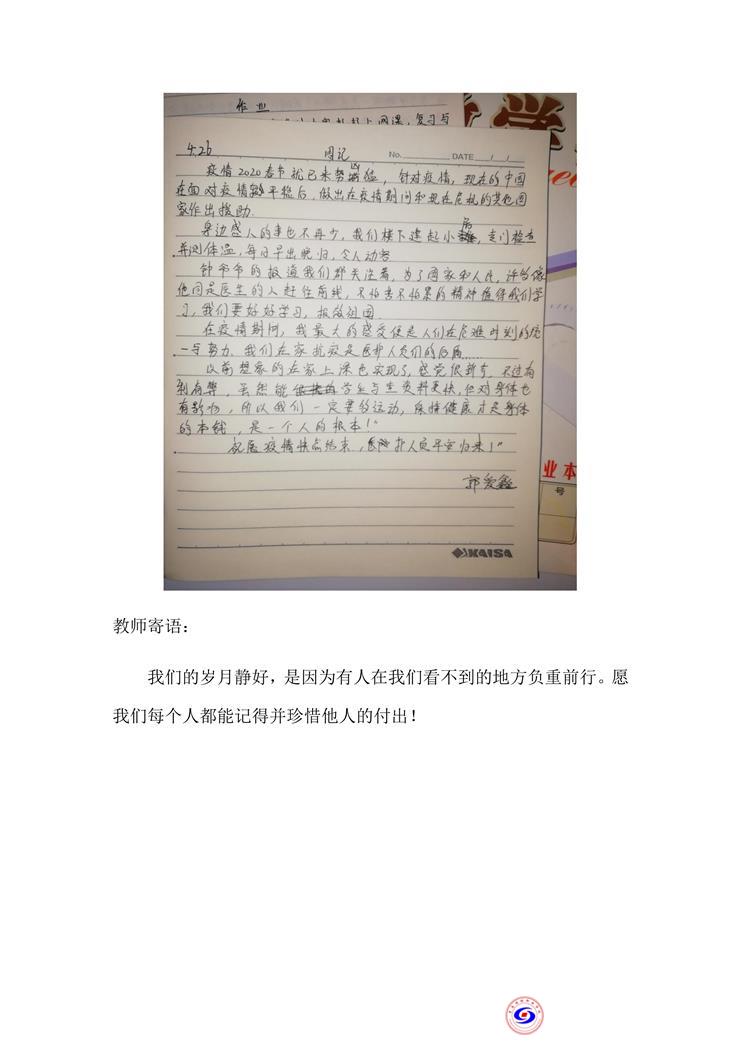 作业
上网课，复习与
4.26
周记
No.
DATE / /
疫情2020春节就已来势凶猛，针对疫情，现在的中国
在面对疫情平稳后，做出在疫情期间和现在危机的其他国
家作出援助.
身边感人的事也不再少，我们楼下建起小房，专门检查
并测体温，每日早出晚归，令人动容
钟爷爷的报道我们都关注着，为了国家和人民，许多像
他同是医生的人赶往前线，不怕苦不怕累的精神值得我们学
习，我们要好好学习，报效祖国.
在疫情期间，我最大的感受便是人们在危难时刻的统
一与努力. 我们在家抗疫是医护人员们的后盾……
以前想象的在家上课也实现了，感觉很新奇，不过有
利有弊，虽然能 学生与生资料更快，但对身体也
有款物，所以我们一定要多运动，保持健康才是身体
的本钱，是一个人的根本！"
祝愿疫情快点结束，医护人员平安归来！"
郭爱鑫
KAISA
学
业本
号
教师寄语：
我们的岁月静好，是因为有人在我们看不到的地方负重前行。愿
我们每个人都能记得并珍惜他人的付出！